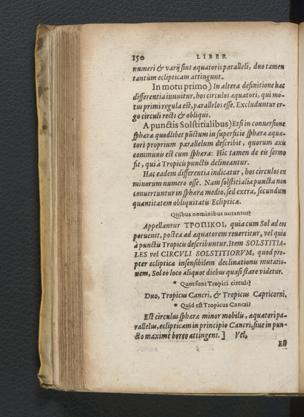 150 LIBER
numeri & varij sint æquatoris paralleli, duo tamen
tantùm eclipticam attingunt.
In motu primo) In altera definitione hac
differentia innuitur, hos circulos æquatori, qui mo-
tus primi regula est, parallelos esse. Excluduntur er-
go circuli recti & obliqui.
A punctis Solstitialibus) Etsi in conuersione
sphæræ quodlibet punctum in superficie sphæræ æqua-
tori proprium parallelum describit, quorum axis
communis est cum sphæra: Hîc tamen de eis sermo
fit, qui à Tropicis punctis delineantur.
Hac eadem differentia indicatur, hos circulos ex
minorum numero esse. Nam solstitialia puncta non
conuertuntur in sphæræ medio, sed extra, secundum
quantitatem obliquitatis Eclipticæ.
Quibus nominibus notantur?
Appellantur ΤΡΟΠΙΚΟΙ, quia cum Sol ad eos
peruenit, postea ad æquatorem reuertitur, vel quia
à punctis Tropicis describuntur. Item SOLSTITIA-
LES vel CIRCVLI SOLSTITIORVM, quod pro-
pter eclipticæ insensibilem declinationis mutatio-
nem, Sol eo loco aliquot diebus quasi stare videtur.
* Quot sunt Tropici circuli?
Duo, Tropicus Cancri, & Tropicus Capricorni.
* Quid est Tropicus Cancri?
Est circulus sphæræ minor mobilis, æquatori pa-
rallelus, eclipticam in principio Cancri, siue in pun-
cto maximè boreo attingens.] Vel,
Est